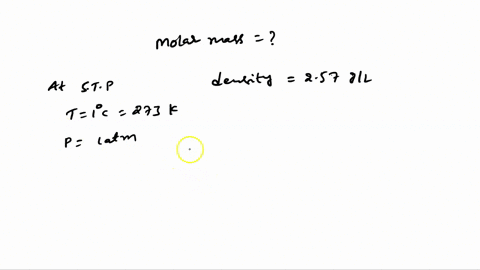 Molar mass = ?
At S.T.P
density = 2.57 g/L
T = 1°C = 273 K
P = 1atm